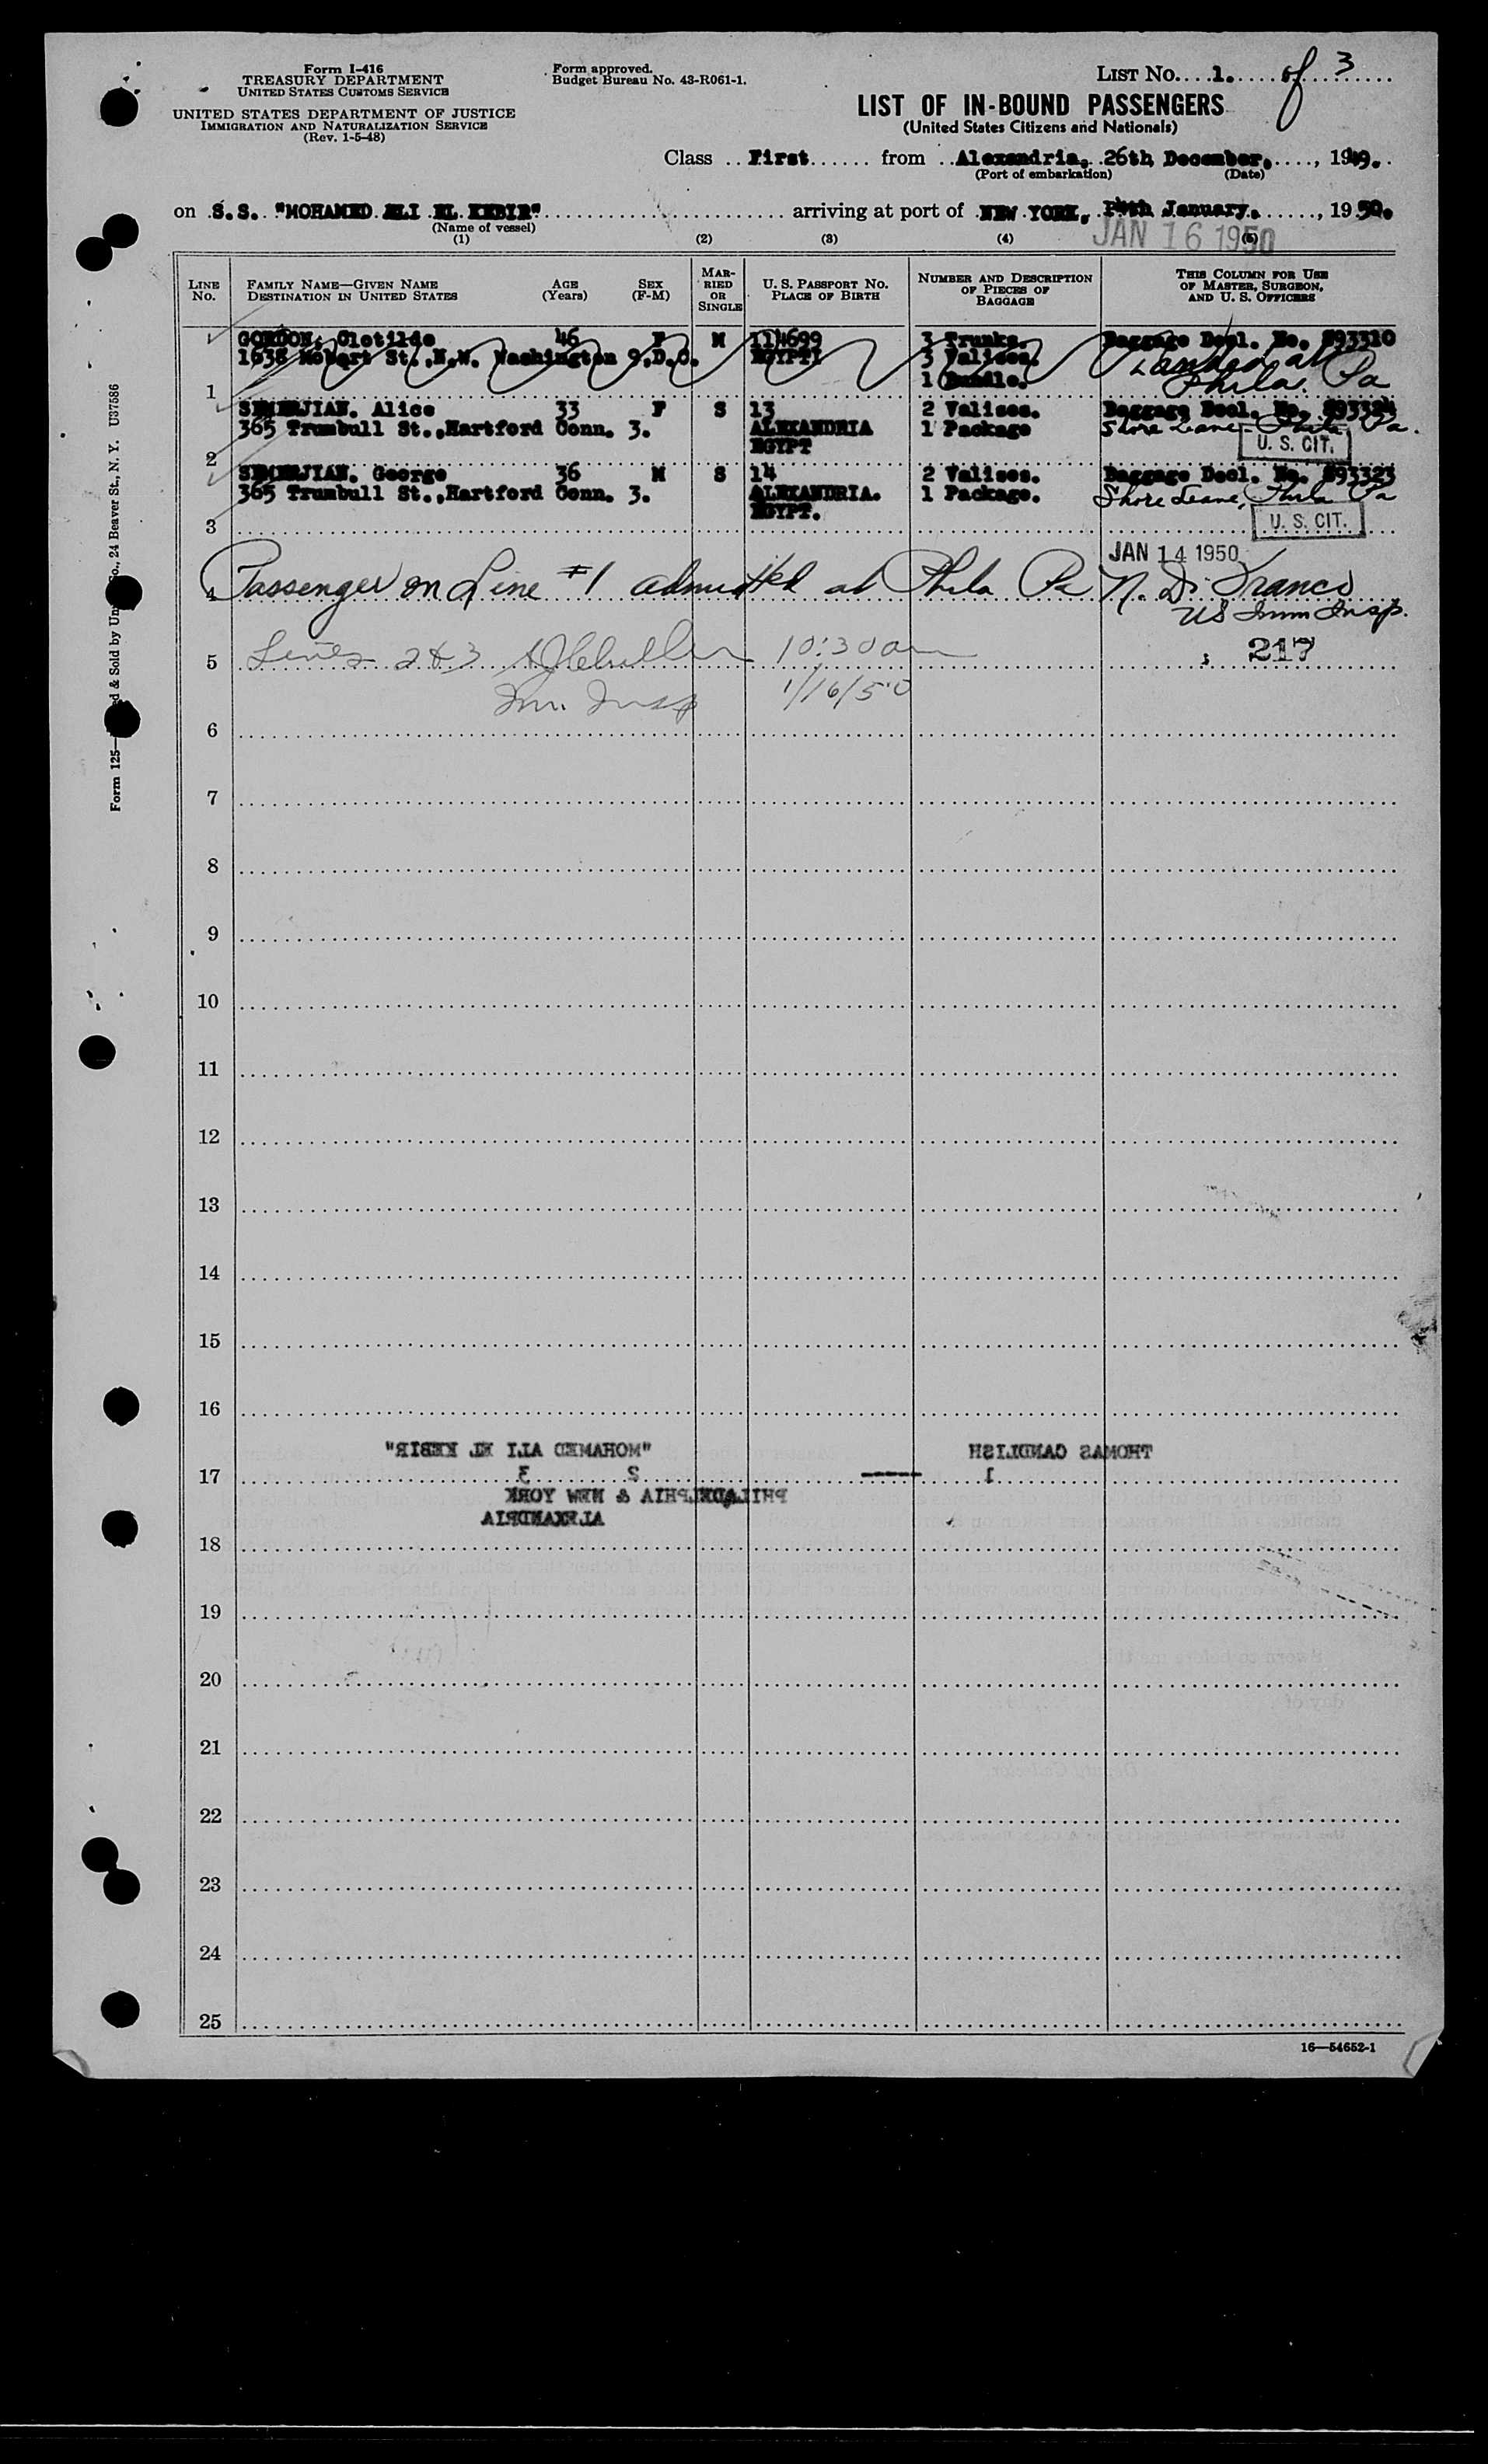 Form I-416
TREASURY DEPARTMENT
UNITED STATES CUSTOMS SERVICE
UNITED STATES DEPARTMENT OF JUSTICE
IMMIGRATION AND NATURALIZATION SERVICE
(Rev. 1-5-48)
Form approved.
Budget Bureau No. 43-R061-1.
LIST No. 1. of 3
LIST OF IN-BOUND PASSENGERS
(United States Citizens and Nationals)
Class First from Alexandria, 26th December, 1949.
(Port of embarkation) (Date)
on S.S. "MOHAMED ALI EL KEBIR" arriving at port of NEW YORK, January, 1950.
(Name of vessel)
JAN 16 1950
(1) (2) (3) (4) (5)
LINE No.
FAMILY NAME—GIVEN NAME
DESTINATION IN UNITED STATES
AGE (Years)
SEX (F-M)
MARRIED OR SINGLE
U. S. PASSPORT No.
PLACE OF BIRTH
NUMBER AND DESCRIPTION OF PIECES OF BAGGAGE
THIS COLUMN FOR USE OF MASTER, SURGEON, AND U. S. OFFICERS
1 GORDON, Clotilde 46 F M 114699 3 Trunks. Baggage Decl. No. 893310
1638 Hobart St.,N.W. Washington 9,D.C. EGYPT 3 Valises. Landed at
1 Bundle. Phila. Pa
2 Alice 33 F S 13 2 Valises. Baggage Decl. No. 893324
365 Trumbull St.,Hartford Conn. 3. ALEXANDRIA 1 Package Shore Leave Phila Pa.
EGYPT U. S. CIT.
3 George 36 M S 14 2 Valises. Baggage Decl. No. 893323
365 Trumbull St.,Hartford Conn. 3. ALEXANDRIA. 1 Package. Shore Leave, Phila Pa
EGYPT. U. S. CIT.
JAN 14 1950
4 Passenger on Line #1 admitted at Phila Pa N. Di Franco
US Imm Insp.
5 Lines 2 & 3 10:30 am 217
Im. Insp 1/16/50
6
7
8
9
10
11
12
13
14
15
16
"MOHAMED ALI EL KEBIR" THOMAS CANDLISH
17 2 3 1
PHILADELPHIA & NEW YORK
ALEXANDRIA
18
19
20
21
22
23
24
25
16—54652-1
Form 125— & Sold by 24 Beaver St., N. Y. U37586